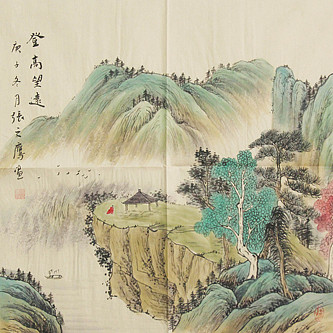 登高望遠
庚子冬月張之鷹畫